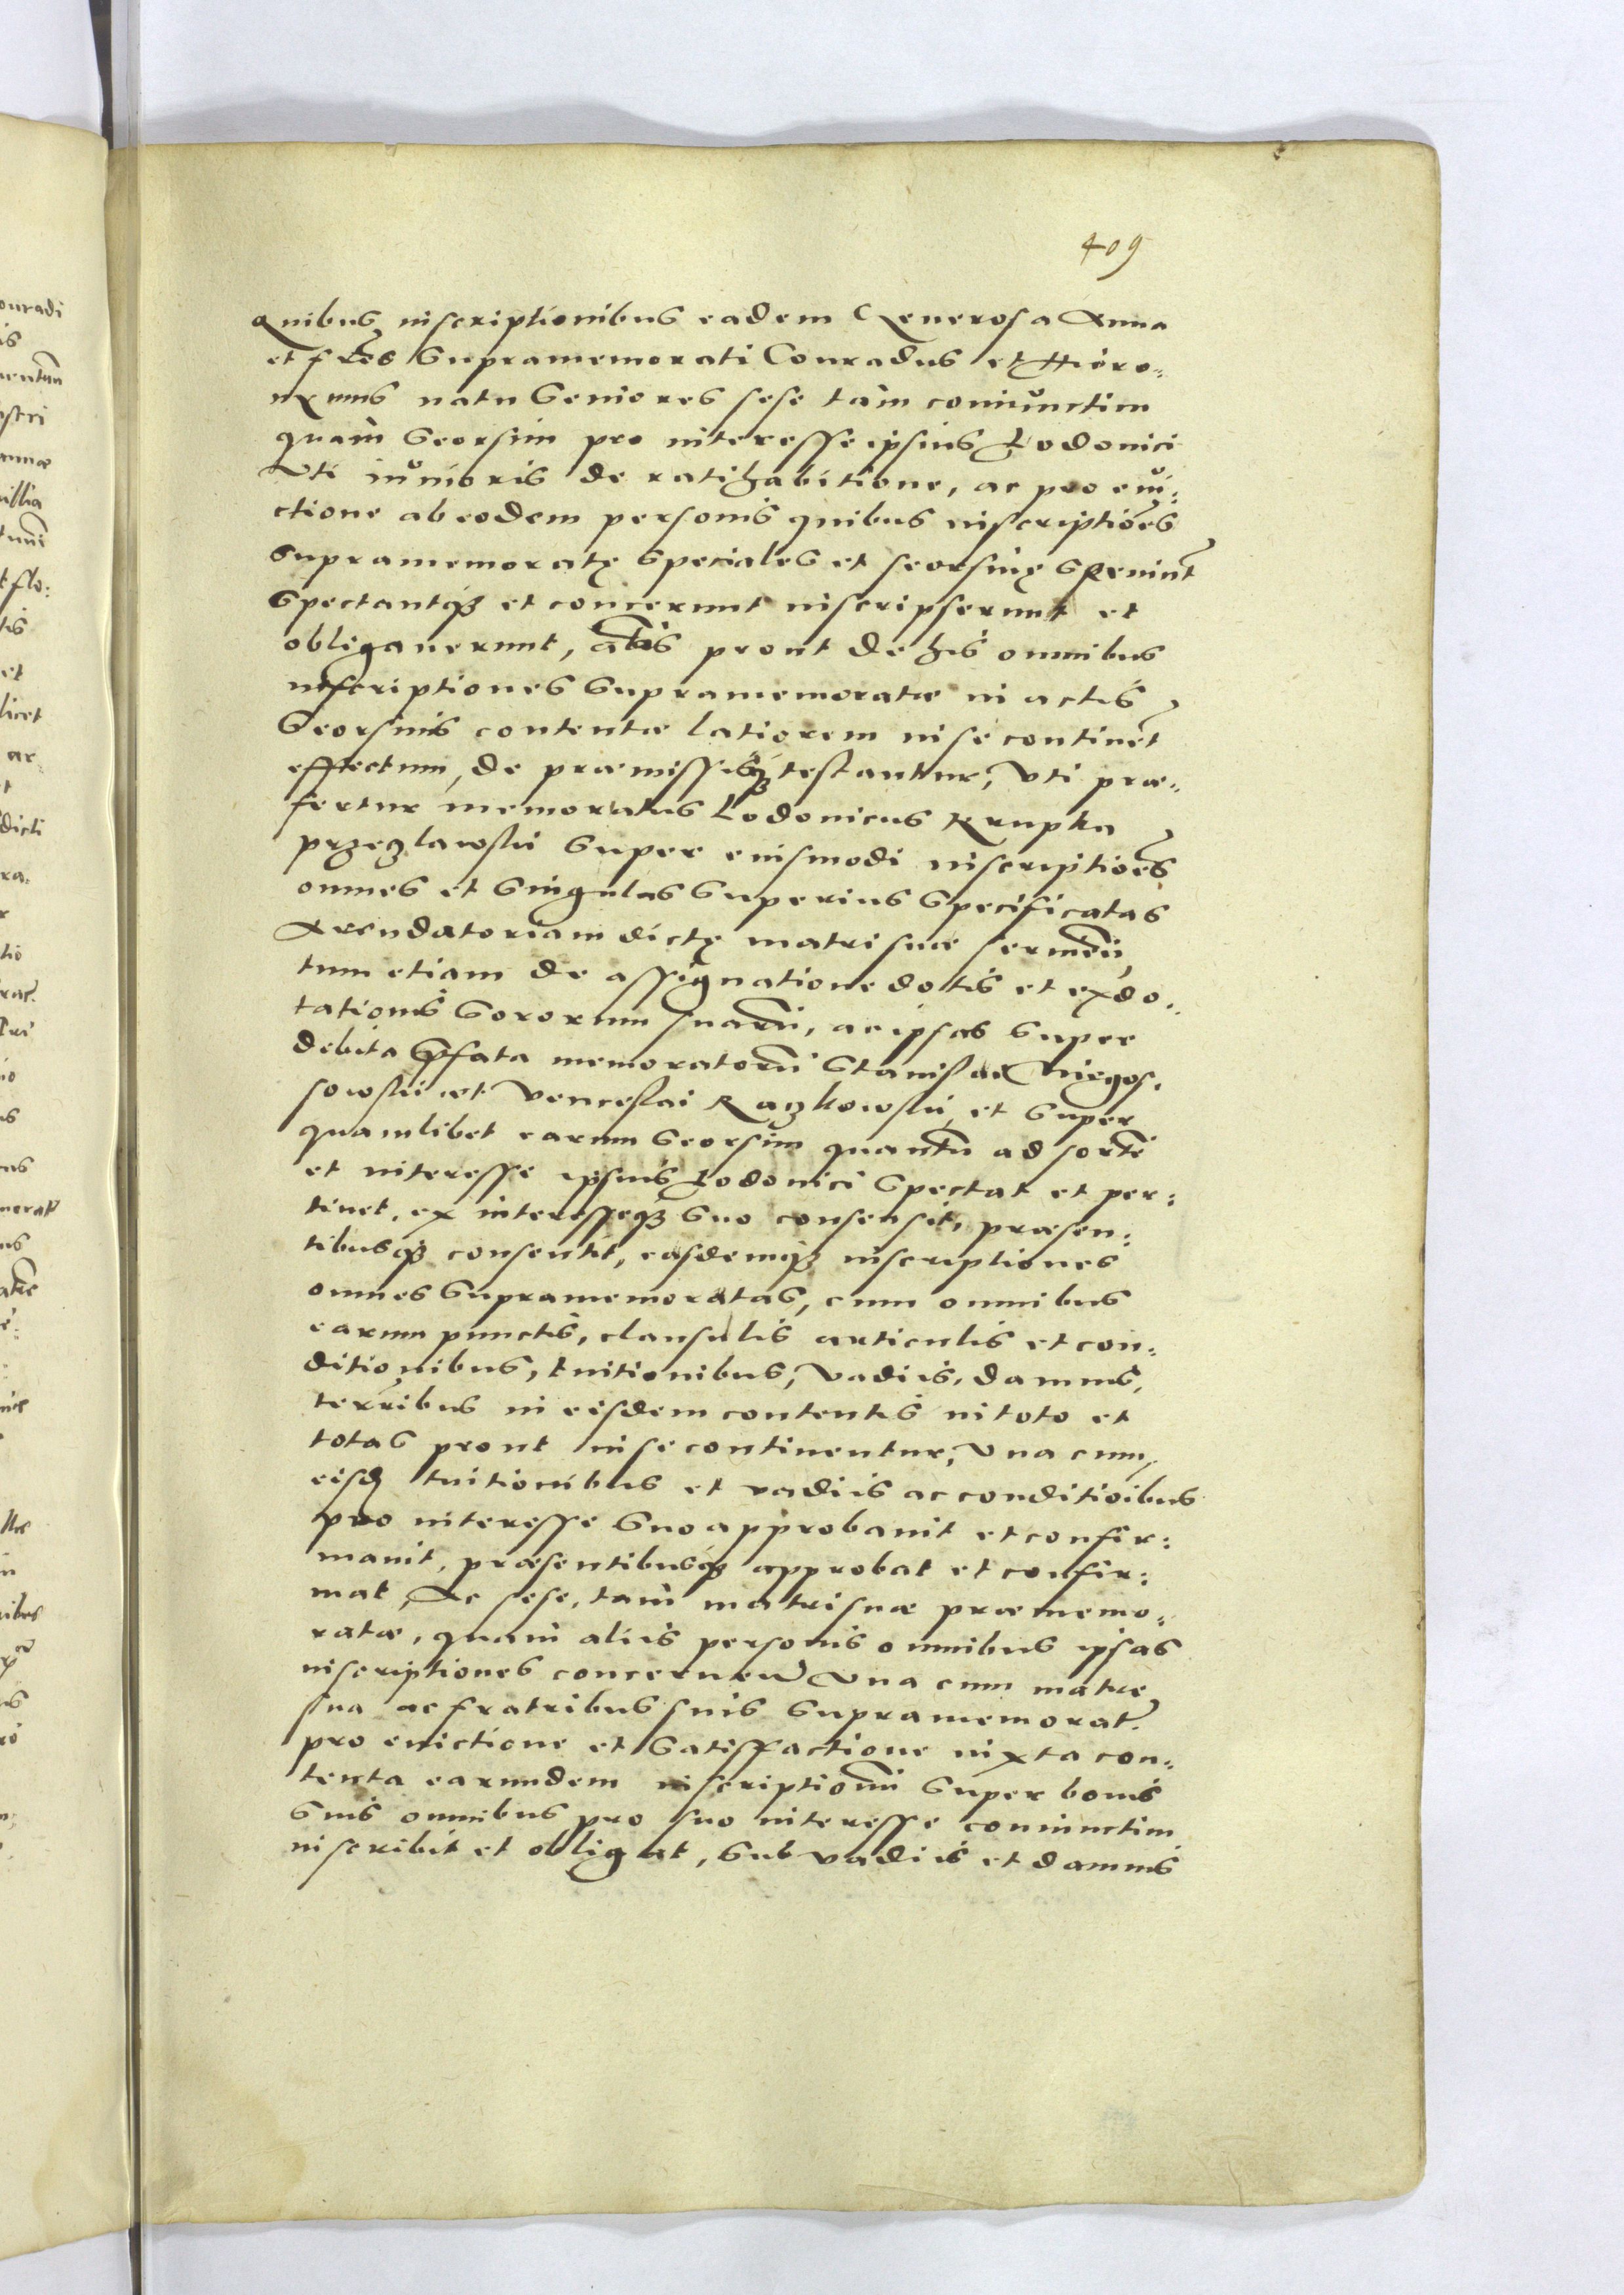 409
Quibus inscriptionibus eadem Generosa Anna
et fr̃es supramemorati Conradus et Hiero:
nymus natu seniores sese tam coniunctim
quam seorsim pro interesse ipsius Lodouici
vti iunioris de ratihabitione, ac pro eui:
ctione ab eodem personis quibus inscriptiões
supramemoratę speciales et seorsiuę seruiunt
spectantq3 et concerunt inscripserunt et
obligauerunt, prout de his omnibus
inscriptiones supramemoratæ in actis
seorsiuis contentæ latiorem in se continẽt
effectum, de præmissisq3 testantur, vti præ:
fertur memoratus Lodouicus Krupka
Przeczlawski super eiusmodi inscriptiões
omnes et singulas superius specificatas
Arendatoriam dictę matri suæ
tum etiam de assignatione dotis et exdo:
tationis sororum suarũ, ac ipsas super
debita p̃fata memoratorũ Stanislai Niegos:
sowski et Venceslai Raczkowski, et super
quamlibet earum seorsim quantũ ad sortẽ
et interesse ipsius Lodouici spectat et per:
tinet, ex interesseq3 suo consensit, præsen:
tibusq3 consentit, easdemq3 inscriptiones
omnes supramemoratas, cum omnibus
earum punctis, clausulis articulis et con:
ditionibus, tuitionibus, vadiis, damnis,
terribus in eisdem contentis in toto et
totas prout in se continentur, vna cum
eisd tuitionibus et vadiis ac conditioĩbus
pro interesse suo approbauit et confir:
mauit, præsentibusq3 approbat et confir:
mat, Ac sese, tam matri suæ præmemo:
ratæ, quam aliis personis omnibus ipsas
inscriptiones concernen vna cum matre
sua ac fratribus suis supramemorat.
pro euictione et satisfactione iuxta con:
tenta earundem inscriptionũ super bonis
suis omnibus pro suo interesse coniunctim
inscribit et obligat, sub vadiis et damnis